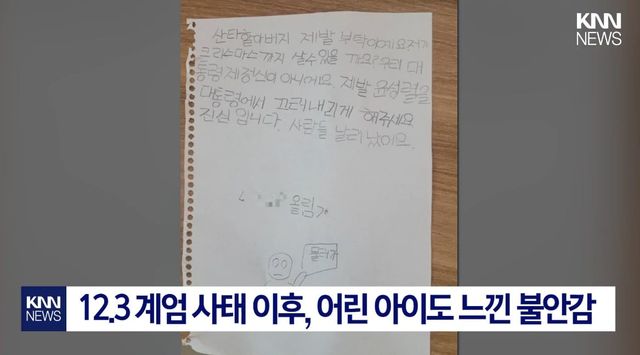 KNN
NEWS
산타할아버지 제발 부탁이에요저가
크리스마스까지 살수있을 까요?우리 대
통령 제정신이 아니에요. 제발 윤성렬을
대통령에서 끄러내리게 해주세요
진심 입니다. 사람들 난리 났어요.
올림
KNN
NEWS
12.3 계엄 사태 이후, 어린 아이도 느낀 불안감